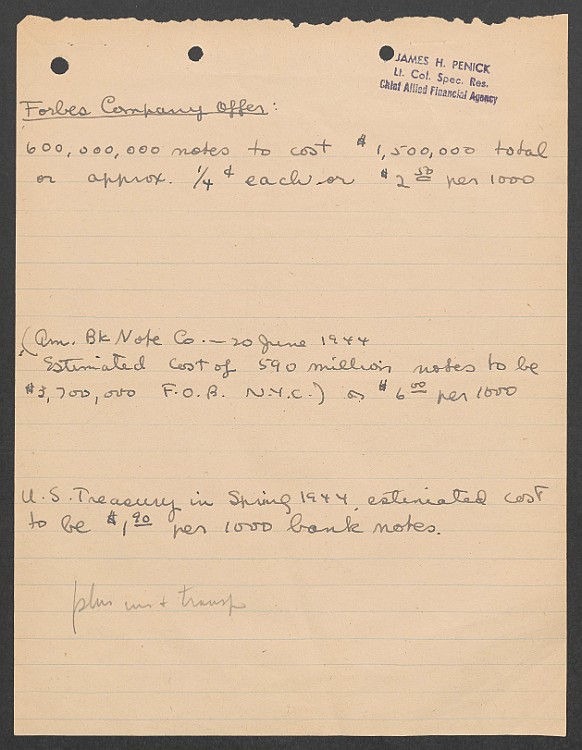 JAMES H. PENICK
Lt. Col. Spec. Res.
Chief Allied Financial Agency
Forbes Company Offer:
600,000,000 notes to cost $1,500,000 total
or approx. 1/4 ¢ each or $2 50 per 1000
(Am. Bk Note Co. — 20 June 1944
Estimated cost of 590 million notes to be
$3,700,000 F.O.B. N.Y.C.) or $6 00 per 1000
U.S. Treasury in Spring 1944 estimated cost
to be $1 90 per 1000 bank notes.
plus ins + transp